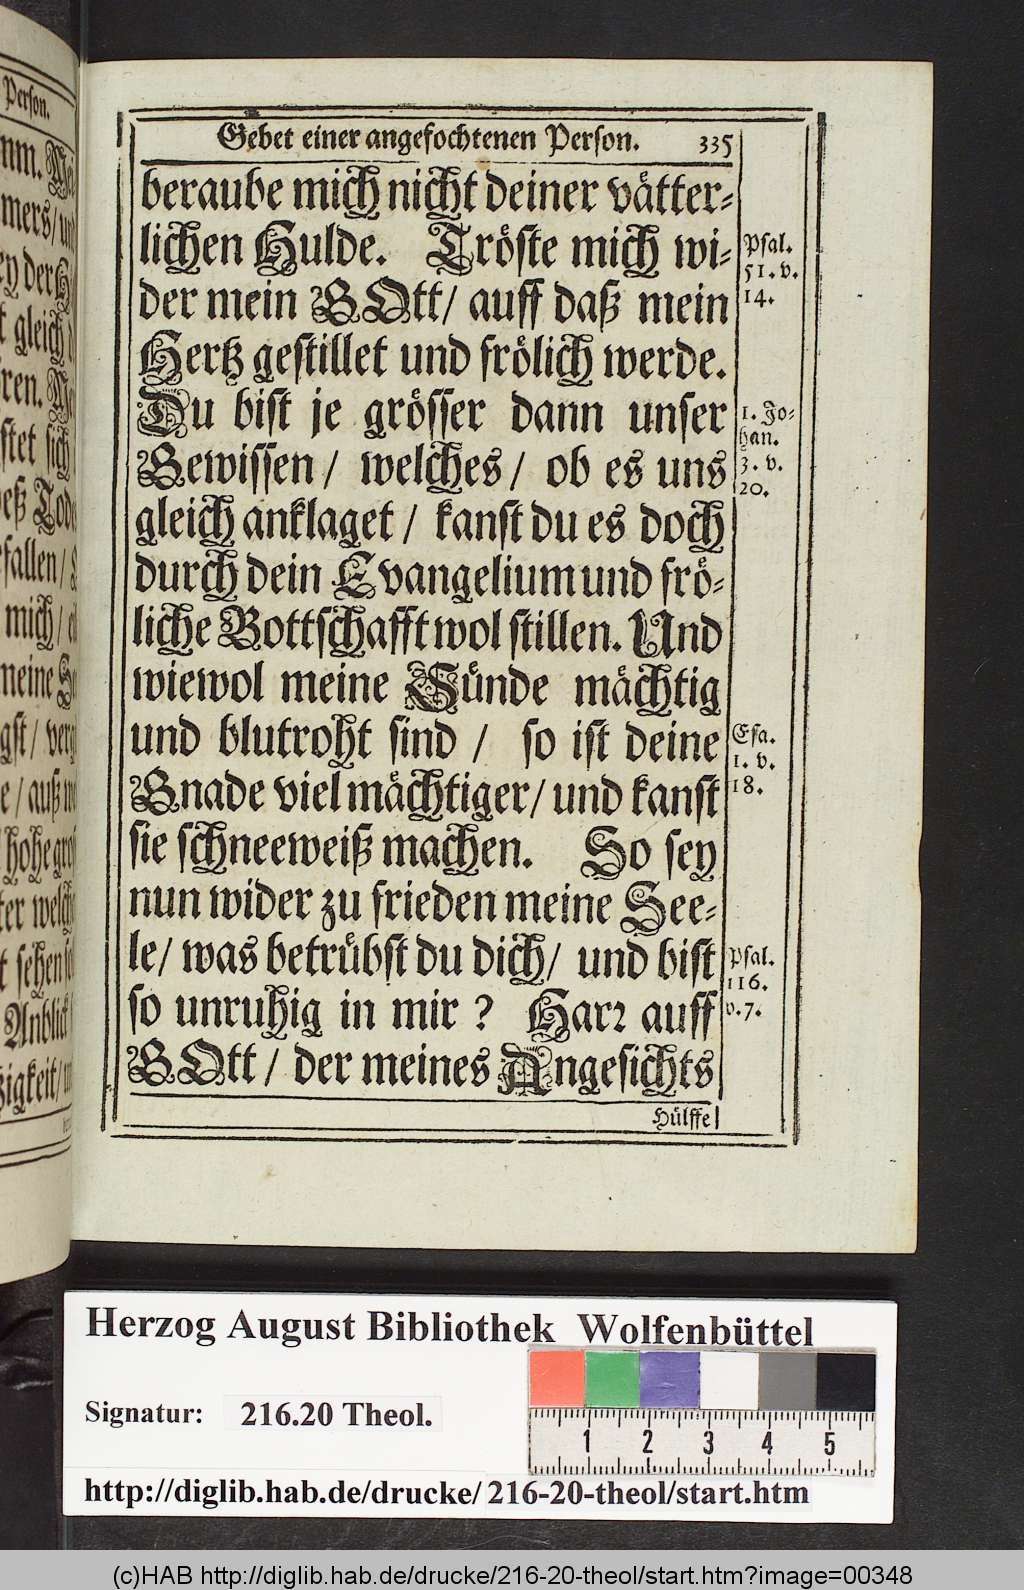 Gebet einer angefochtenen Person. 335
beraube mich nicht deiner vätter-
lichen Hulde. Tröste mich wi-
der mein GOtt/ auff daß mein
Hertz gestillet und frölich werde.
Du bist je grösser dann unser
Gewissen/ welches/ ob es uns
gleich anklaget/ kanst du es doch
durch dein Evangelium und frö-
liche Bottschafft wol stillen. Und
wiewol meine Sünde mächtig
und blutroht sind/ so ist deine
Gnade viel mächtiger/ und kanst
sie schneeweiß machen. So sey
nun wider zu frieden meine See-
le/ was betrübst du dich/ und bist
so unruhig in mir? Harr auff
GOtt/ der meines Angesichts
Hülffe
Psal.
51. v.
14.
1. Jo-
han.
3. v.
20.
Esa.
1. v.
18.
Psal.
116.
v. 7.
Person.
mers/ und
ey der
gleich
ren.
stet sich
fallen/
mich/
meine
gst/
e/ auß
hohe
ter
sehen
Anblick
zigkeit/
Herzog August Bibliothek Wolfenbüttel
Signatur: 216.20 Theol.
1 2 3 4 5
http://diglib.hab.de/drucke/216-20-theol/start.htm
(c)HAB http://diglib.hab.de/drucke/216-20-theol/start.htm?image=00348